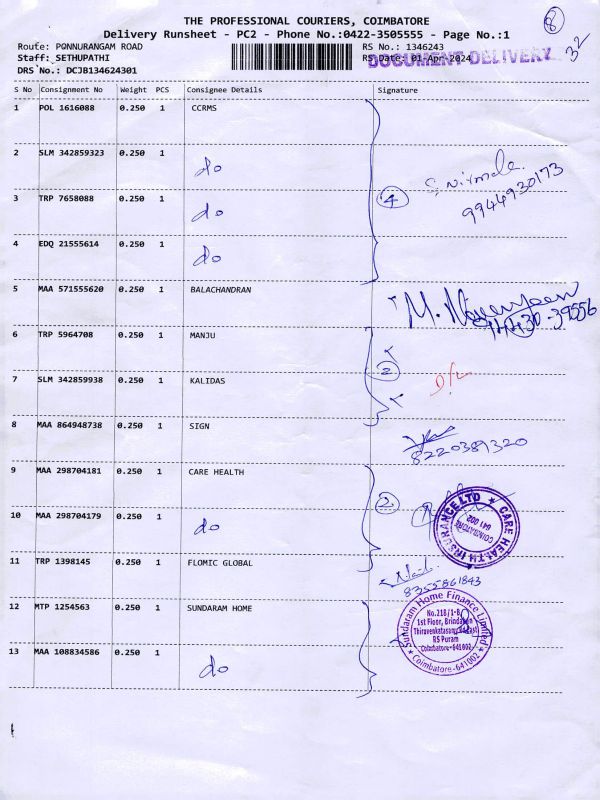 THE PROFESSIONAL COURIERS, COIMBATORE
Delivery Runsheet - PC2 - Phone No.:0422-3505555 - Page No.:1
8
32
Route: PONNURANGAM ROAD
RS No.: 1346243
Staff: SETHUPATHI
RS Date: 01-Apr-2024
DOCUMENT DELIVERY
DRS No.: DCJB134624301
S No Consignment No Weight PCS Consignee Details Signature
1 POL 1616088 0.250 1 CCRMS
2 SLM 342859323 0.250 1 do
S. Nirmala
3 TRP 7658088 0.250 1 do
4
9944930173
4 EDQ 21555614 0.250 1 do
5 MAA 571555620 0.250 1 BALACHANDRAN
M.
6 TRP 5964708 0.250 1 MANJU
2
7 SLM 342859938 0.250 1 KALIDAS
D/L
8 MAA 864948738 0.250 1 SIGN
8220389320
9 MAA 298704181 0.250 1 CARE HEALTH
2
CARE HEALTH INSURANCE LTD
COIMBATORE
641 002
10 MAA 298704179 0.250 1 do
11 TRP 1398145 0.250 1 FLOMIC GLOBAL
8355861843
12 MTP 1254563 0.250 1 SUNDARAM HOME
Sundaram Home Finance Limited
No.218/1-B,
1st Floor, Brindavan
Thiruvenkatasamy
RS Puram
Coimbatore-641002
Coimbatore-641002
13 MAA 108834586 0.250 1 do